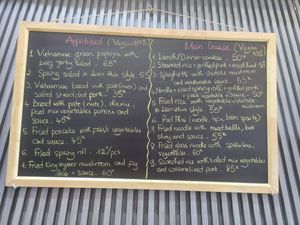 Appetised (Vegan 60%)
1. Vietnamese green papaya with
beef jerky salad. 65"
2. Spring salad in Asian this style. 55"
3. Vietnamese bread with pate (nuts) and
salted shredded pork. 35"
4. Bread with pate (nuts),
fried mix vegetables patties and
sauce. 45"
5. Fried pancake with fresh vegetables
and sauce. 45"
6. Fried spring roll. 12"/pcs
7. Fried king oyster mushroom and
sauce. 60"
Main Course (Vegan
1. Lunch/Dinner combo. 50"
2. Steamed rice + grilled pork + meat bowl 50"
3. Spaghetti with shiitake mushroom
and sauce. 55"
4. Noodle + fried spring roll + grilled pork
+ fresh vegetable + sauce. 50"
5. Fried rice with vegetable + shiitake
mushroom in style. 55"
6. Pad Thai (noodle, tofu, bean sprouts)
7. Fried noodle with meat balls, tofu
and sauce. 55"
8. Fried glass noodle with
vegetables. 60"
9. Scorched rice with boiled mix vegetables
and caramelised pork. 85"